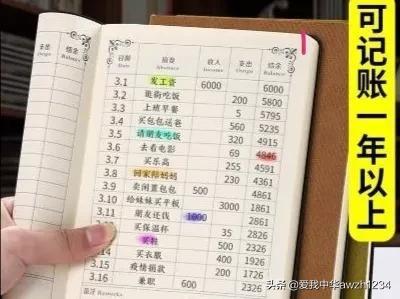 支出 结余
Outgo Balance
日期 摘要 收入 支出 结余
Date Abstract Income Outgo Balance
3.1 发工资 6000 6000
3.2 逛街吃饭 200 5800
3.3 上班早餐 5 5795
3.4 买包包送爸 560 5235
3.5 请朋友吃饭 320 4915
3.6 去看电影 69 4846
3.7 买乐高 255 4591
3.8 回家陪妈妈 230 4361
3.9 卖闲置包包 500 4861
3.10 给妹妹买平板 3000 1861
3.11 朋友还钱 1000 2861
买保温杯 35 2826
买鞋 500 2326
3.14 买衣服 400 1926
3.15 疫情捐款 200 1726
3.16 兼职 600 2326
备注 Remarks
可记账一年以上
头条 @爱我中华awzh1234